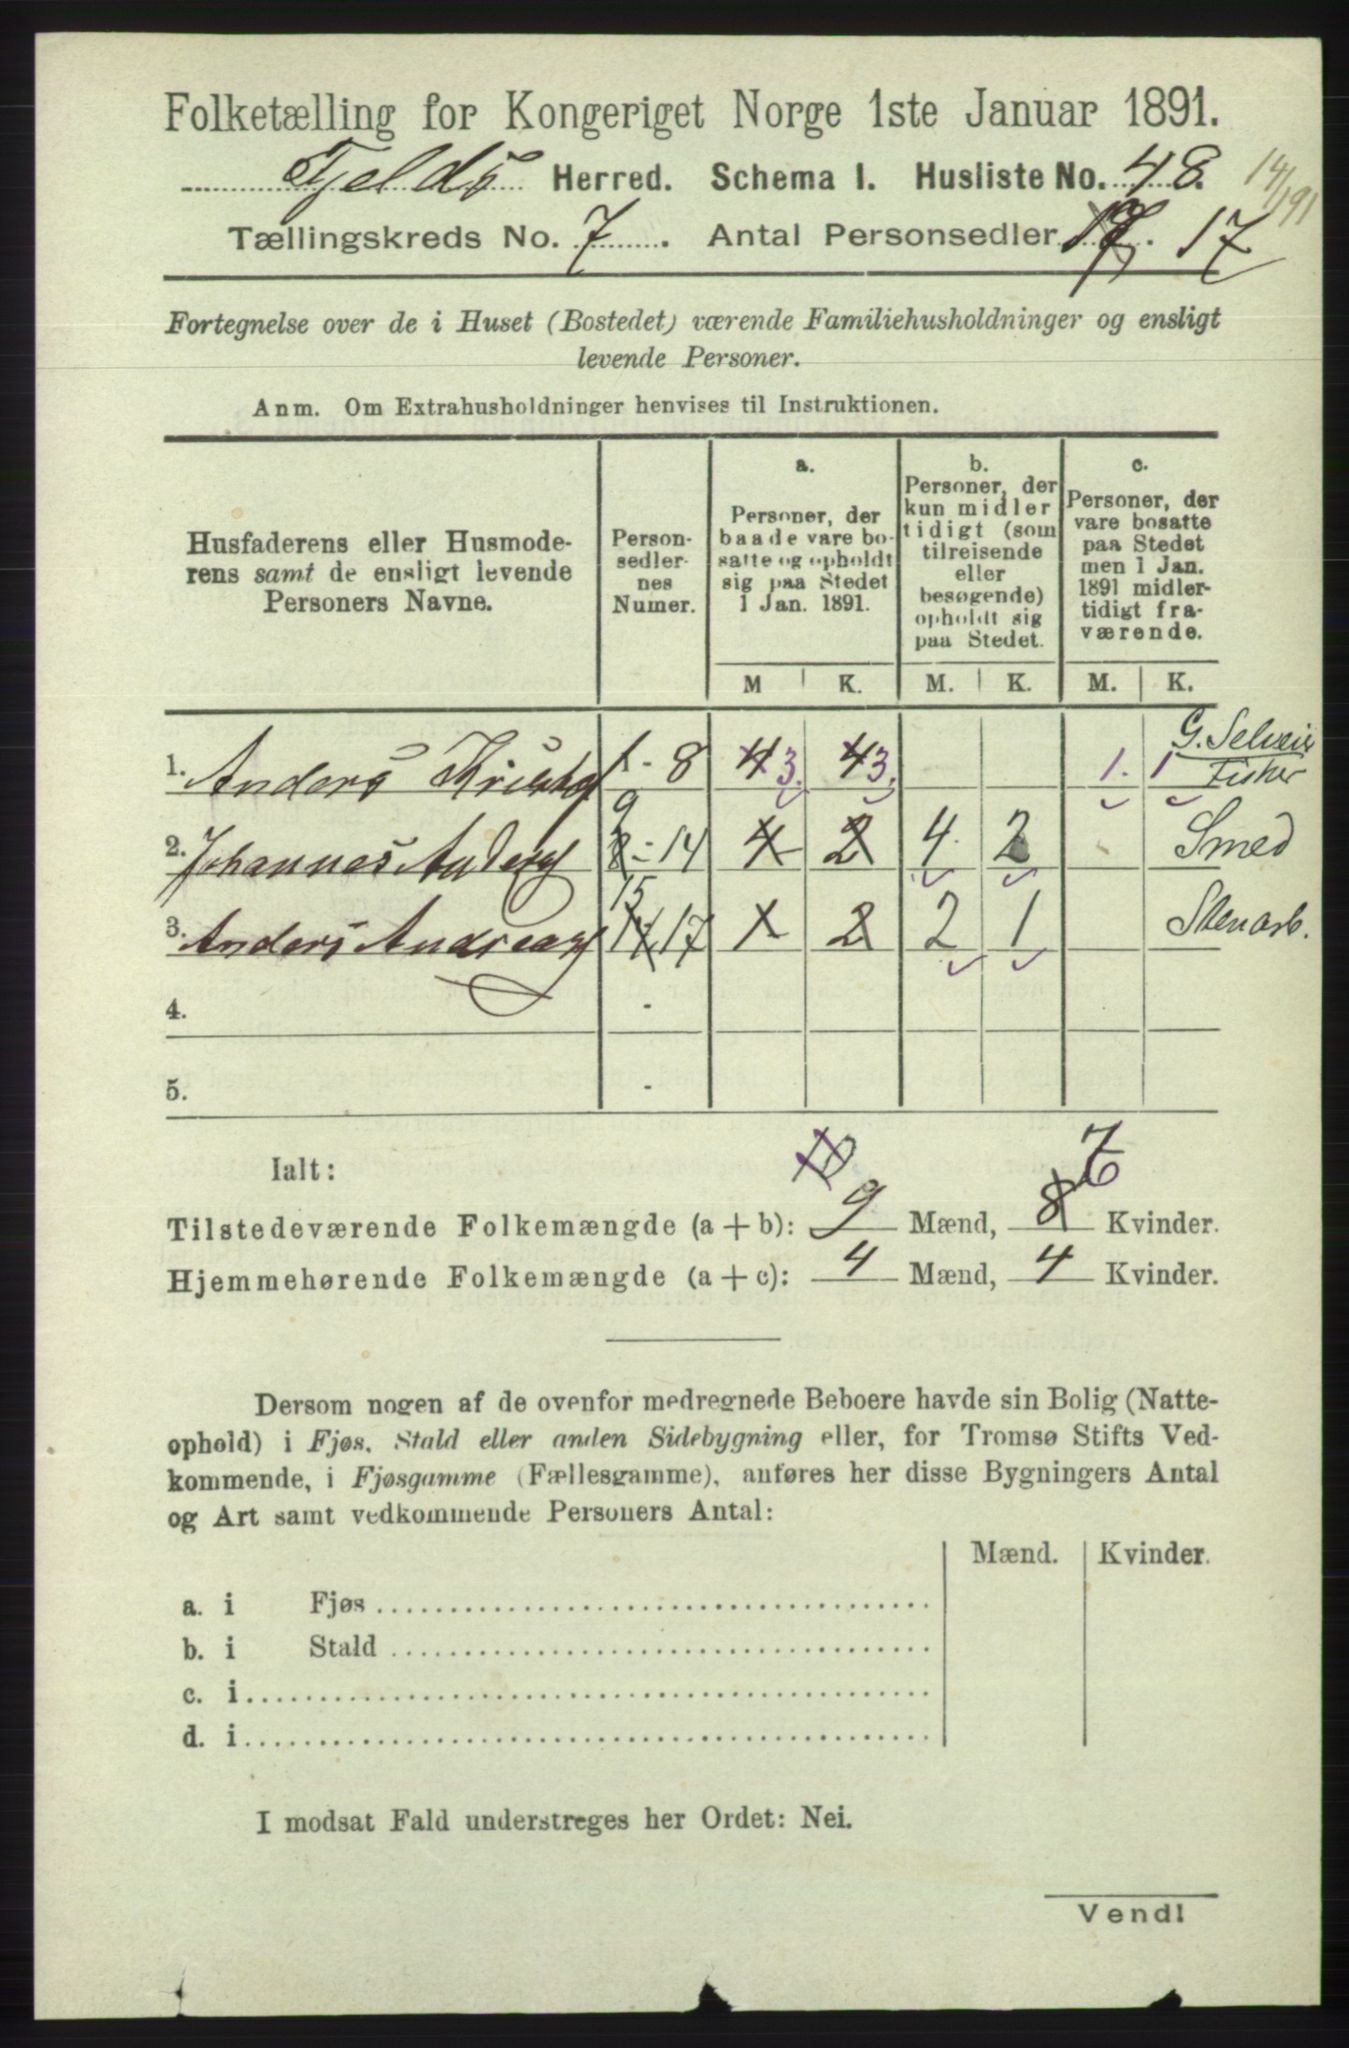 Folketælling for Kongeriget Norge 1ste Januar 1891.
Fjelds Herred. Schema I. Husliste No. 48.
Tællingskreds No. 7. Antal Personsedler 17
Fortegnelse over de i Huset (Bostedet) værende Familiehusholdninger og ensligt
levende Personer.
Anm. Om Extrahusholdninger henvises til Instruktionen.
Husfaderens eller Husmode-
rens samt de ensligt levende
Personers Navne.
Person-
sedler-
nes
Numer.
a.
Personer, der
baade vare bo-
satte og opholdt
sig paa Stedet
1 Jan. 1891.
b.
Personer, der
kun midler
tidigt (som
tilreisende
eller
besøgende)
opholdt sig
paa Stedet.
c.
Personer, der
vare bosatte
paa Stedet
men 1 Jan.
1891 midler-
tidigt fra-
værende.
M K. M. K. M. K.
1. Anders 1 - 8 4 3. 4 3. 1. 1 G. Selveier
Fisker
2. Johannes 8 9 - 14 4 2 4. 2 Smed
3. Anders Andreas 15 17 2 2 1 Stenarb.
4. -
5. -
Ialt:
7
Tilstedeværende Folkemængde (a + b): 9 Mænd, 8 Kvinder.
Hjemmehørende Folkemængde (a + c): 4 Mænd, 4 Kvinder.
Dersom nogen af de ovenfor medregnede Beboere havde sin Bolig (Natte-
ophold) i Fjøs, Stald eller anden Sidebygning eller, for Tromsø Stifts Ved-
kommende, i Fjøsgamme (Fællesgamme), anføres her disse Bygningers Antal
og Art samt vedkommende Personers Antal:
Mænd. Kvinder.
a. i Fjøs
b. i Stald
c. i
d. i
I modsat Fald understreges her Ordet: Nei.
Vend!